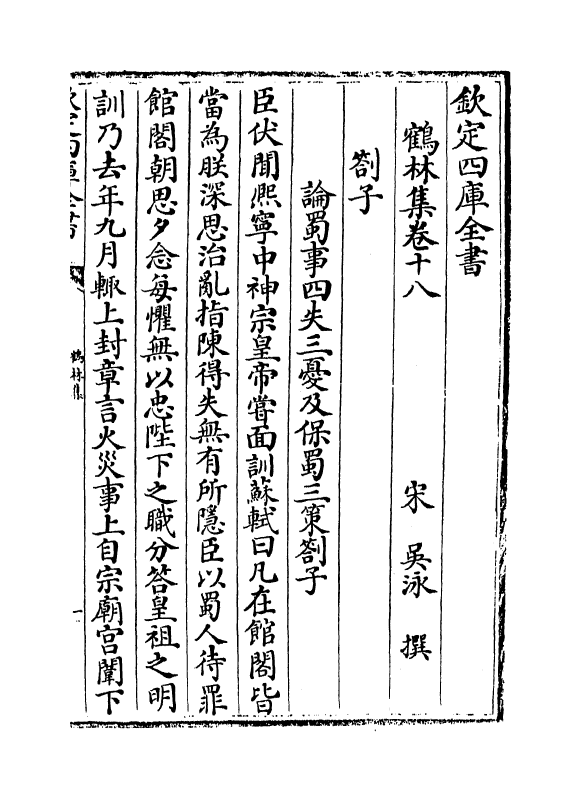 欽定四庫全書
鶴林集卷十八
宋 吳泳 撰
劄子
論蜀事四失三憂及保蜀三策劄子
臣伏聞熈寧中神宗皇帝嘗面訓蘇軾曰凡在館閣皆
當為朕深思治亂指陳得失無有所隱臣以蜀人待罪
館閣朝思夕念每懼無以忠陛下之職分答皇祖之明
訓乃去年九月輙上封章言火災事上自宗廟宫闈下
欽定四庫全書
鶴林集
一